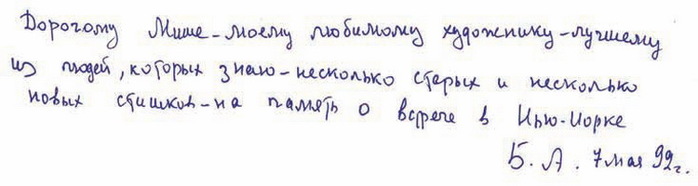 Дорогому Мише-моему любимому художнику-лучшему
из людей, которых знаю-несколько старых и несколько
новых стишков-на память о встрече в Нью-Иорке
Б. А. 7 мая 92 г.